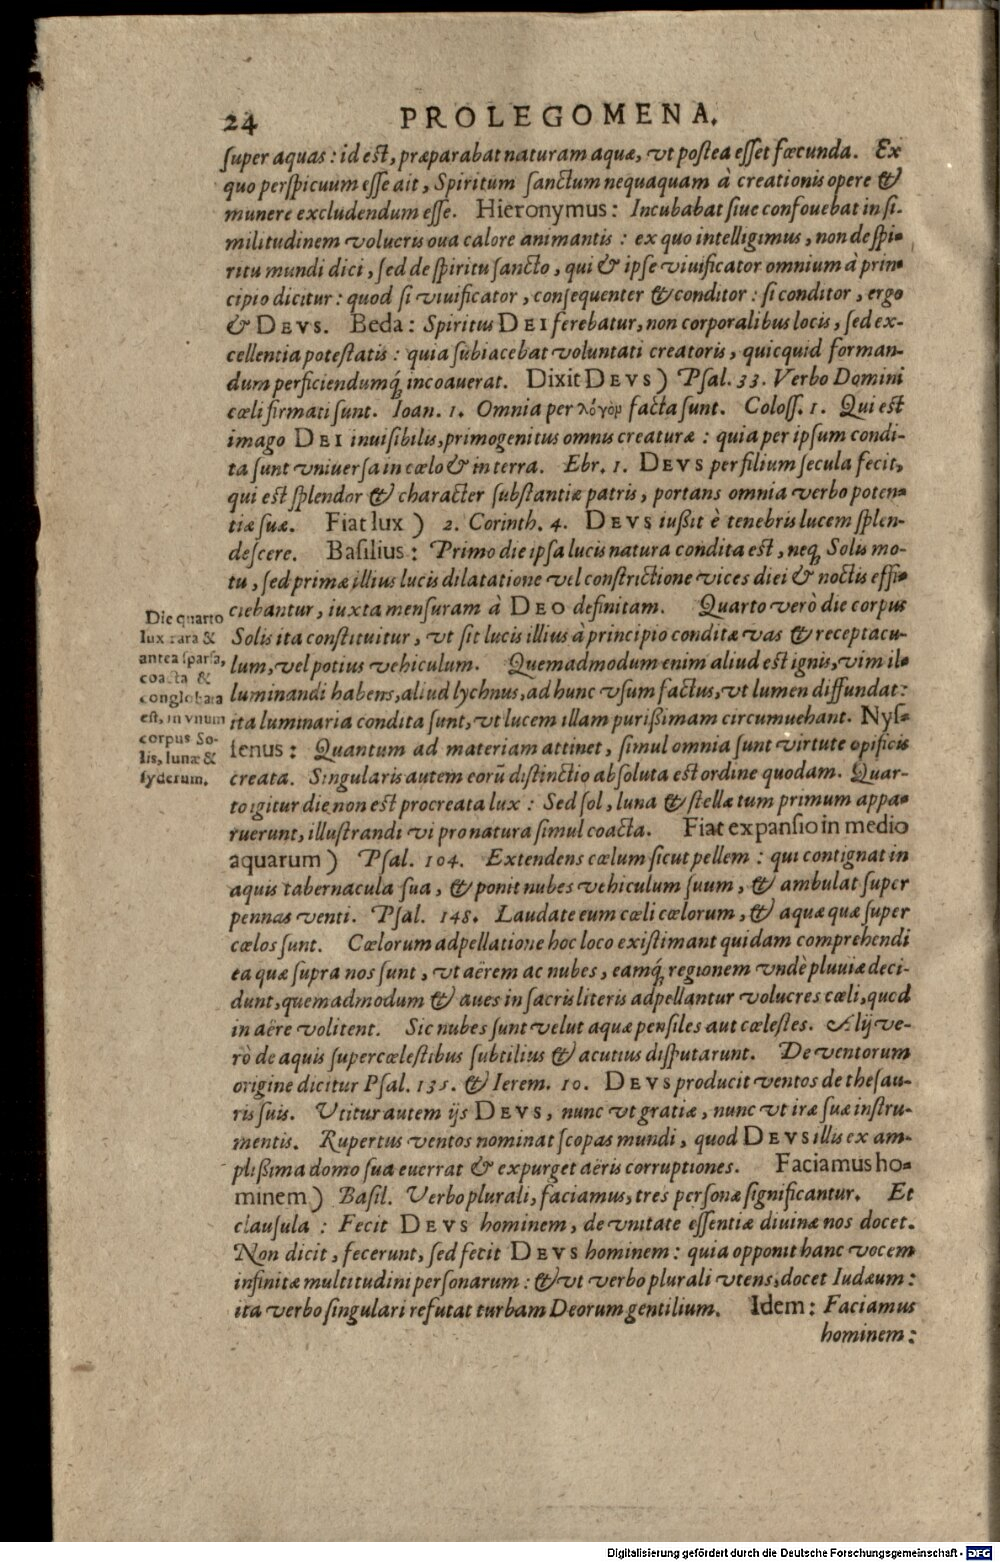 24 PROLEGOMENA.
super aquas: id est, præparabat naturam aquæ, vt postea esset fœcunda. Ex
quo perspicuum esse ait, Spiritum sanctum nequaquam à creationis opere &
munere excludendum esse. Hieronymus: Incubabat siue confouebat in si-
militudinem volucris oua calore animantis: ex quo intelligimus, non de spi-
ritu mundi dici, sed de spiritu sancto, qui & ipse viuificator omnium à prin-
cipio dicitur: quod si viuificator, consequenter & conditor: si conditor, ergo
& DEVS. Beda: Spiritus DEI ferebatur, non corporalibus locis, sed ex-
cellentia potestatis: quia subiacebat voluntati creatoris, quicquid forman-
dum perficiendumq́; incoauerat. Dixit DEVS) Psal. 33. Verbo Domini
cœli firmati sunt. Ioan. 1. Omnia per λόγον facta sunt. Coloss. 1. Qui est
imago DEI inuisibilis, primogenitus omnis creaturæ: quia per ipsum condi-
ta sunt vniuersa in cœlo & in terra. Ebr. 1. DEVS per filium secula fecit,
qui est splendor & character substantiæ patris, portans omnia verbo poten-
tiæ suæ. Fiat lux) 2. Corinth. 4. DEVS iußit è tenebris lucem splen-
descere. Basilius: Primo die ipsa lucis natura condita est, neq; Solis mo-
tu, sed primæ illius lucis dilatatione vel constrictione vices diei & noctis effi-
ciebantur, iuxta mensuram à DEO definitam. Quarto verò die corpus
Solis ita constituitur, vt sit lucis illius à principio conditæ vas & receptacu-
lum, vel potius vehiculum. Quemadmodum enim aliud est ignis, vim il-
luminandi habens, aliud lychnus, ad hunc vsum factus, vt lumen diffundat:
ita luminaria condita sunt, vt lucem illam purißimam circumuehant. Nys-
senus: Quantum ad materiam attinet, simul omnia sunt virtute opificis
creata. Singularis autem eorū distinctio absoluta est ordine quodam. Quar-
to igitur die non est procreata lux: Sed sol, luna & stellæ tum primum appa-
ruerunt, illustrandi vi pro natura simul coacta. Fiat expansio in medio
aquarum) Psal. 104. Extendens cœlum sicut pellem: qui contignat in
aquis tabernacula sua, & ponit nubes vehiculum suum, & ambulat super
pennas venti. Psal. 148. Laudate eum cœli cœlorum, & aquæ quæ super
cœlos sunt. Cœlorum adpellatione hoc loco existimant quidam comprehendi
ea quæ supra nos sunt, vt aërem ac nubes, eamq́; regionem vndè pluuiæ deci-
dunt, quemadmodum & aues in sacris literis adpellantur volucres cœli, quod
in aëre volitent. Sic nubes sunt velut aquæ pensiles aut cœlestes. Alij ve-
rò de aquis supercœlestibus subtilius & acutius disputarunt. De ventorum
origine dicitur Psal. 135. & Ierem. 10. DEVS producit ventos de thesau-
ris suis. Vtitur autem ijs DEVS, nunc vt gratiæ, nunc vt iræ suæ instru-
mentis. Rupertus ventos nominat scopas mundi, quod DEVS illis ex am-
plißima domo sua euerrat & expurget aëris corruptiones. Faciamus ho-
minem) Basil. Verbo plurali, faciamus, tres personæ significantur. Et
clausula: Fecit DEVS hominem, de vnitate essentiæ diuinæ nos docet.
Non dicit, fecerunt, sed fecit DEVS hominem: quia opponit hanc vocem
infinitæ multitudini personarum: & vt verbo plurali vtens, docet Iudæum:
ita verbo singulari refutat turbam Deorum gentilium. Idem: Faciamus
hominem:
Die quarto
lux rara &
antea sparsa,
coacta &
conglobata
est, in vnum
corpus So-
lis, lunæ &
syderum.
Digitalisierung gefördert durch die Deutsche Forschungsgemeinschaft - DFG